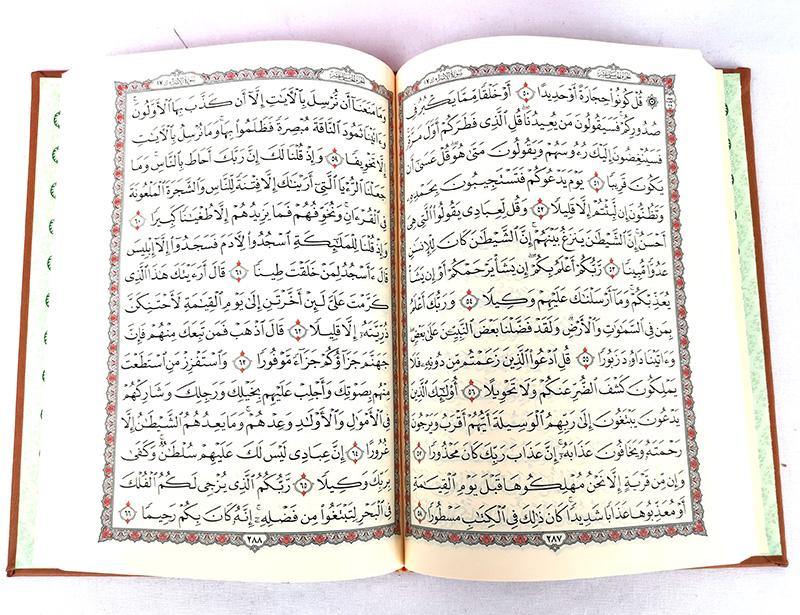 الجزء الخامس عشر سورة الإسراء ١٧
۞ قُلْ كُونُوا۟ حِجَارَةً أَوْ حَدِيدًا ٥٠ أَوْ خَلْقًا مِّمَّا يَكْبُرُ فِى
صُدُورِكُمْ ۚ فَسَيَقُولُونَ مَن يُعِيدُنَا ۖ قُلِ ٱلَّذِى فَطَرَكُمْ أَوَّلَ مَرَّةٍ ۚ
فَسَيُنْغِضُونَ إِلَيْكَ رُءُوسَهُمْ وَيَقُولُونَ مَتَىٰ هُوَ ۖ قُلْ عَسَىٰٓ أَن
يَكُونَ قَرِيبًا ٥١ يَوْمَ يَدْعُوكُمْ فَتَسْتَجِيبُونَ بِحَمْدِهِۦ
وَتَظُنُّونَ إِن لَّبِثْتُمْ إِلَّا قَلِيلًا ٥٢ وَقُل لِّعِبَادِى يَقُولُوا۟ ٱلَّتِى هِىَ
أَحْسَنُ ۚ إِنَّ ٱلشَّيْطَٰنَ يَنزَغُ بَيْنَهُمْ ۚ إِنَّ ٱلشَّيْطَٰنَ كَانَ لِلْإِنسَٰنِ
عَدُوًّا مُّبِينًا ٥٣ رَّبُّكُمْ أَعْلَمُ بِكُمْ ۖ إِن يَشَأْ يَرْحَمْكُمْ أَوْ إِن يَشَأْ
يُعَذِّبْكُمْ ۚ وَمَآ أَرْسَلْنَٰكَ عَلَيْهِمْ وَكِيلًا ٥٤ وَرَبُّكَ أَعْلَمُ
بِمَن فِى ٱلسَّمَٰوَٰتِ وَٱلْأَرْضِ ۗ وَلَقَدْ فَضَّلْنَا بَعْضَ ٱلنَّبِيِّۦنَ عَلَىٰ بَعْضٍ ۖ
وَءَاتَيْنَا دَاوُۥدَ زَبُورًا ٥٥ قُلِ ٱدْعُوا۟ ٱلَّذِينَ زَعَمْتُم مِّن دُونِهِۦ فَلَا
يَمْلِكُونَ كَشْفَ ٱلضُّرِّ عَنكُمْ وَلَا تَحْوِيلًا ٥٦ أُو۟لَٰٓئِكَ ٱلَّذِينَ
يَدْعُونَ يَبْتَغُونَ إِلَىٰ رَبِّهِمُ ٱلْوَسِيلَةَ أَيُّهُمْ أَقْرَبُ وَيَرْجُونَ
رَحْمَتَهُۥ وَيَخَافُونَ عَذَابَهُۥٓ ۚ إِنَّ عَذَابَ رَبِّكَ كَانَ مَحْذُورًا ٥٧
وَإِن مِّن قَرْيَةٍ إِلَّا نَحْنُ مُهْلِكُوهَا قَبْلَ يَوْمِ ٱلْقِيَٰمَةِ
أَوْ مُعَذِّبُوهَا عَذَابًا شَدِيدًا ۚ كَانَ ذَٰلِكَ فِى ٱلْكِتَٰبِ مَسْطُورًا ٥٨
٢٨٧
الجزء الخامس عشر سورة الإسراء ١٧
وَمَا مَنَعَنَآ أَن نُّرْسِلَ بِٱلْءَايَٰتِ إِلَّآ أَن كَذَّبَ بِهَا ٱلْأَوَّلُونَ ۚ
وَءَاتَيْنَا ثَمُودَ ٱلنَّاقَةَ مُبْصِرَةً فَظَلَمُوا۟ بِهَا ۚ وَمَا نُرْسِلُ بِٱلْءَايَٰتِ
إِلَّا تَخْوِيفًا ٥٩ وَإِذْ قُلْنَا لَكَ إِنَّ رَبَّكَ أَحَاطَ بِٱلنَّاسِ ۚ وَمَا
جَعَلْنَا ٱلرُّءْيَا ٱلَّتِىٓ أَرَيْنَٰكَ إِلَّا فِتْنَةً لِّلنَّاسِ وَٱلشَّجَرَةَ ٱلْمَلْعُونَةَ
فِى ٱلْقُرْءَانِ ۚ وَنُخَوِّفُهُمْ فَمَا يَزِيدُهُمْ إِلَّا طُغْيَٰنًا كَبِيرًا ٦٠
وَإِذْ قُلْنَا لِلْمَلَٰٓئِكَةِ ٱسْجُدُوا۟ لِءَادَمَ فَسَجَدُوٓا۟ إِلَّآ إِبْلِيسَ
قَالَ ءَأَسْجُدُ لِمَنْ خَلَقْتَ طِينًا ٦١ قَالَ أَرَءَيْتَكَ هَٰذَا ٱلَّذِى
كَرَّمْتَ عَلَىَّ لَئِنْ أَخَّرْتَنِ إِلَىٰ يَوْمِ ٱلْقِيَٰمَةِ لَأَحْتَنِكَنَّ
ذُرِّيَّتَهُۥٓ إِلَّا قَلِيلًا ٦٢ قَالَ ٱذْهَبْ فَمَن تَبِعَكَ مِنْهُمْ فَإِنَّ
جَهَنَّمَ جَزَآؤُكُمْ جَزَآءً مَّوْفُورًا ٦٣ وَٱسْتَفْزِزْ مَنِ ٱسْتَطَعْتَ
مِنْهُم بِصَوْتِكَ وَأَجْلِبْ عَلَيْهِم بِخَيْلِكَ وَرَجِلِكَ وَشَارِكْهُمْ
فِى ٱلْأَمْوَٰلِ وَٱلْأَوْلَٰدِ وَعِدْهُمْ ۚ وَمَا يَعِدُهُمُ ٱلشَّيْطَٰنُ إِلَّا
غُرُورًا ٦٤ إِنَّ عِبَادِى لَيْسَ لَكَ عَلَيْهِمْ سُلْطَٰنٌ ۚ وَكَفَىٰ
بِرَبِّكَ وَكِيلًا ٦٥ رَّبُّكُمُ ٱلَّذِى يُزْجِى لَكُمُ ٱلْفُلْكَ
فِى ٱلْبَحْرِ لِتَبْتَغُوا۟ مِن فَضْلِهِۦٓ ۚ إِنَّهُۥ كَانَ بِكُمْ رَحِيمًا ٦٦
٢٨٨